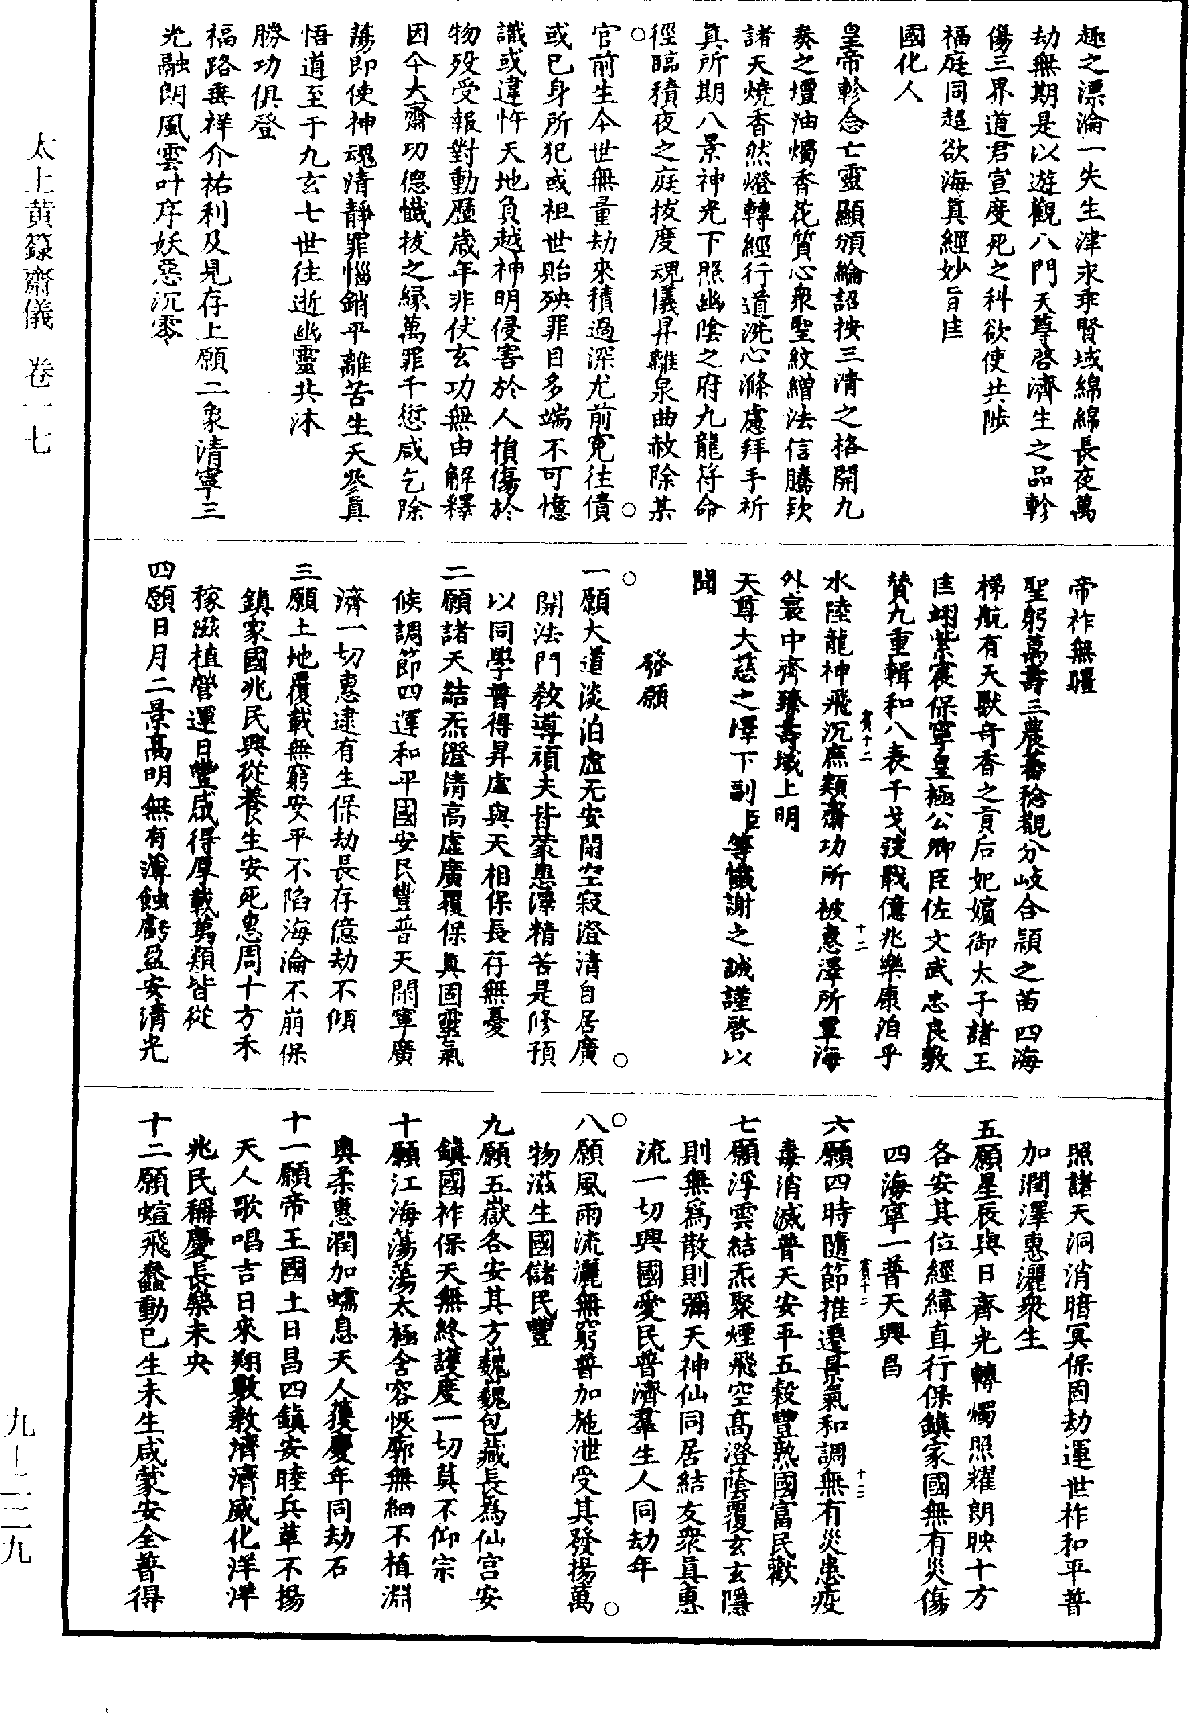 趣之漂淪一失生津永乖腎域綿綿長夜萬
劫無期是以遊觀八門天尊啓濟生之品軫
傷三界道君宣度死之科欲使共陟
福庭同超欲海真經妙旨
國化人
皇帝軫念亡靈顯頒綸詔按三清之格開九
奏之壇油燭香花質心衆聖紋繒法信騰欵
諸天燒香然燈轉經行道洗心滌慮拜手祈
真所期八景神光下照幽陰之府九龍符命
徑臨積夜之庭拔度魂儀昇離泉曲赦除某
官前生今世無量劫來積過深尤前寃往債
或己身所犯或祖世貽殃罪目多端不可憶
識或違忤天地負越神明侵害於人損傷於
物殁受報對動歷歲年非伏玄功無由解釋
因今大齋功德懺拔之緣萬罪千愆咸乞除
蕩即使神魂清靜罪惱銷平離苦生天參真
悟道至于九玄七世往逝幽靈共沐
勝功俱登
福路垂祥介祐利及見存上願二象清寧三
光融朗風雲叶序妖惡沉零
帝祚無疆
聖躬萬壽三農善稔觀分岐合頴之苗四海
梯航有天獸奇香之貢后妃嬪御太子諸王
匡翊紫宸保寧皇極公卿臣佐文武忠良敷
賛九重輯和八表干戈弢戢億兆樂康洎乎
水陸龍神飛沉庶類齋功所被惠澤所覃海
外寰中齊臻壽域上明
天尊大慈之澤下副臣等懺謝之誠謹啓以
聞
發願
一願大道淡泊虛无安閑空寂澄清自居廣
開法門教導頑夫皆蒙惠澤精苦是修預
以同學普得昇虛與天相保長存無憂
二願諸天結炁澄清高虛廣覆保真固靈氣
候調節四運和平國安民豐普天閑寧廣
濟一切惠逮有生保劫長存億劫不傾
三願土地覆載無窮安平不陷海淪不崩保
鎮家國兆民興從養生安死惠周十方禾
稼滋植營運日豐咸得厚載萬類皆從
四願日月二景高明無有薄蝕虧盈安清光
照諸天洞消暗冥保固劫運世祚和平普
加潤澤惠灑衆生
五願星辰與日齊光轉燭照耀朗映十方
各安其位經緯直行保鎮家國無有災傷
四海寧一普天興昌
六願四時隨節推遷景氣和調無有災患疫
毒消滅普天安平五穀豐熟國富民歡
七願浮雲結炁聚煙飛空高澄蔭覆玄玄隱
則無爲散則彌天神仙同居結友衆真惠
流一切興國愛民普濟羣生人同劫年
八願風雨流灑無窮普加施泄受其發揚萬
物滋生國儲民豐
九願五嶽各安其方巍巍包藏長爲仙宮安
鎮國祚保天無終護度一切莫不仰宗
十願江海蕩蕩太極含容恢廓無細不植淵
奥柔惠潤加蠕息天人獲慶年同劫石
十一願帝王國土日昌四鎮安睦兵革不揚
天人歌唱吉日來翔敷教濟濟威化洋洋
兆民稱慶長樂未央
十二願蝖飛蠢動已生未生咸蒙安全普得
太上黄籙齋儀　卷一七
九－二二九